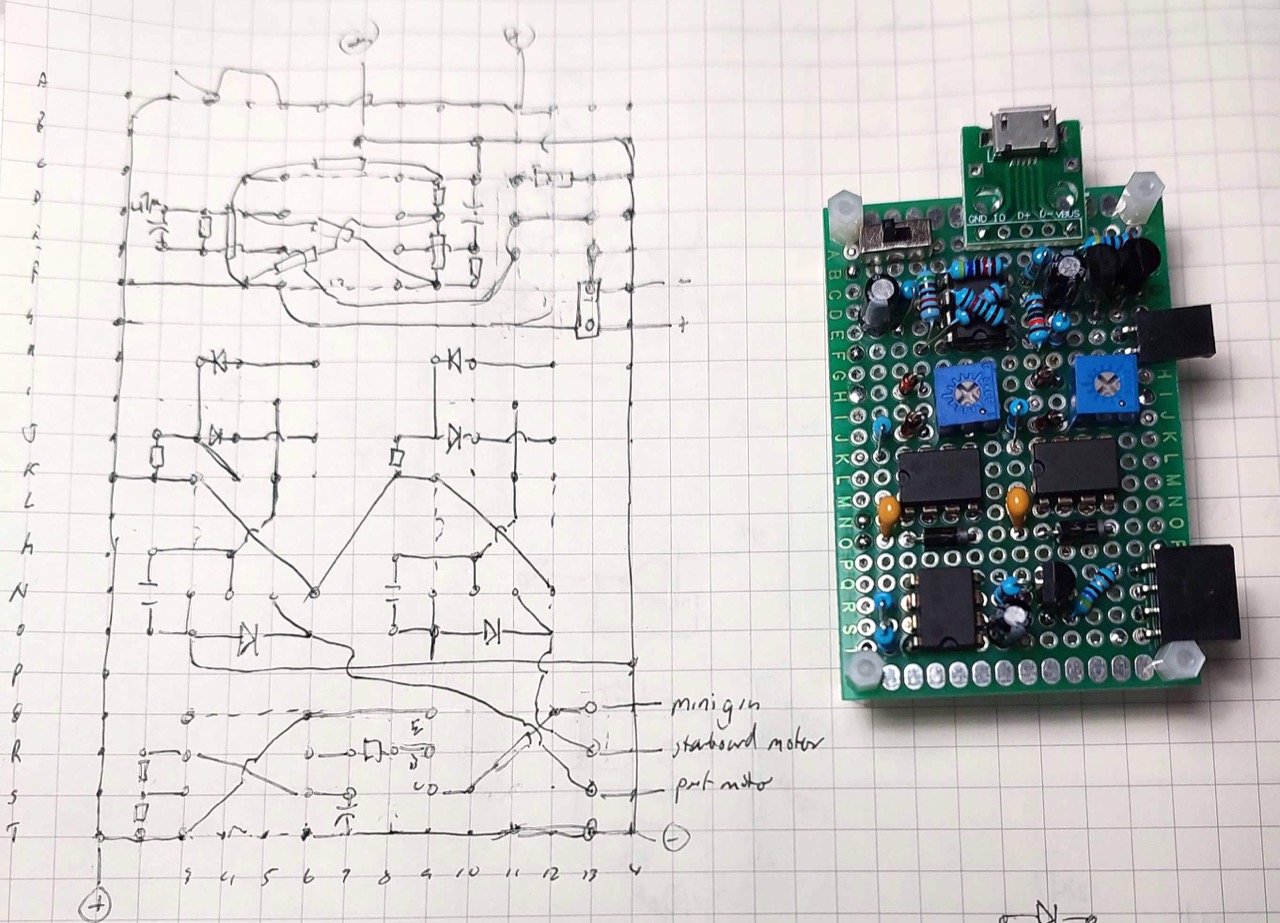 +
A
B
C
D
47μ
E
F
-
G
+
H
I
J
K
L
M
N
O
P
Q
minigun
R
starboard motor
S
port motor
T
-
3 4 5 6 7 8 9 10 11 12 13 14
+
GND ID D+ D- VBUS
A
B
C
D
E
F
G
H
I
J
K
L
M
N
O
P
Q
R
S
H
I
J
K
L
M
N
O